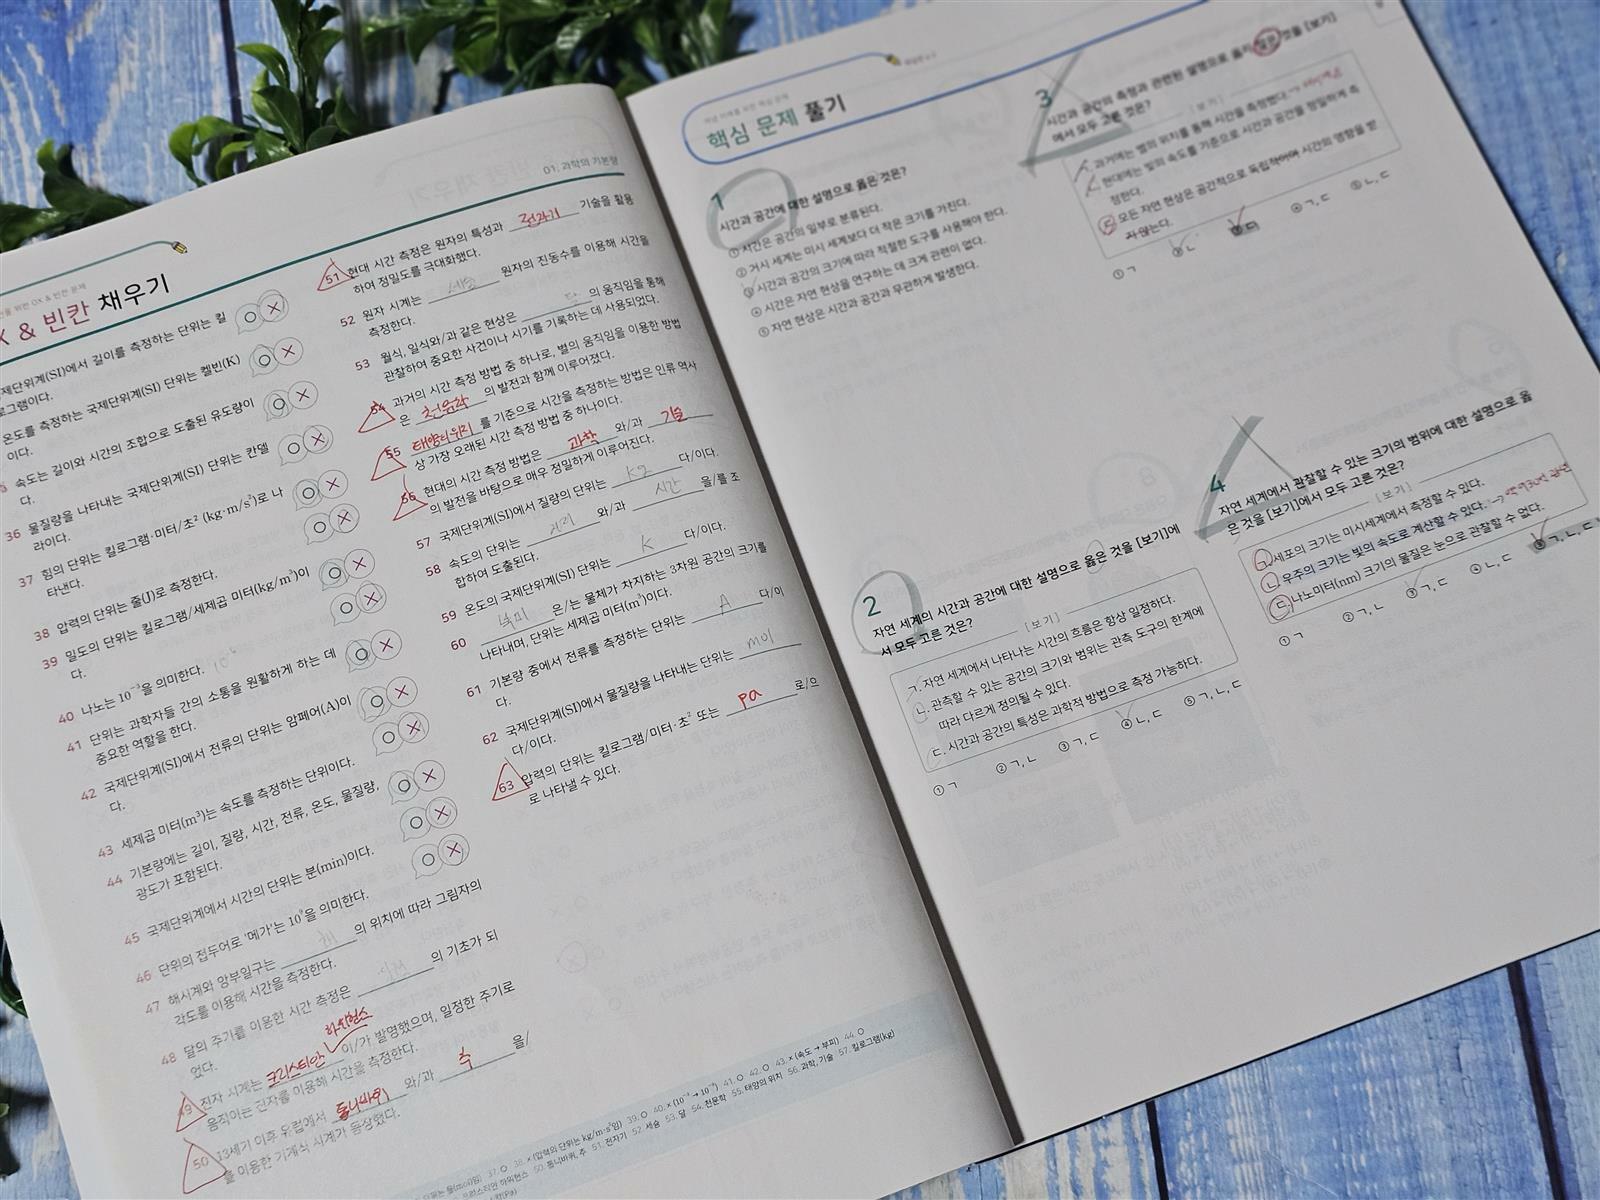 01. 과학의 기본량
& 빈칸 채우기
제단위계(SI)에서 길이를 측정하는 단위는 킬
로그램이다.
온도를 측정하는 국제단위계(SI) 단위는 켈빈(K)
이다.
속도는 길이와 시간의 조합으로 도출된 유도량이
다.
36 물질량을 나타내는 국제단위계(SI) 단위는 칸델
라이다.
37 힘의 단위는 킬로그램·미터/초² (kg·m/s²)로 나
타낸다.
38 압력의 단위는 줄(J)로 측정한다.
39 밀도의 단위는 킬로그램/세제곱 미터(kg/m³)이
다.
40 나노는 10⁻³을 의미한다.
41 단위는 과학자들 간의 소통을 원활하게 하는 데
중요한 역할을 한다.
42 국제단위계(SI)에서 전류의 단위는 암페어(A)이
다.
43 세제곱 미터(m³)는 속도를 측정하는 단위이다.
44 기본량에는 길이, 질량, 시간, 전류, 온도, 물질량,
광도가 포함된다.
45 국제단위계에서 시간의 단위는 분(min)이다.
46 단위의 접두어로 '메가'는 10⁹을 의미한다.
47 해시계와 앙부일구는 의 위치에 따라 그림자의
각도를 이용해 시간을 측정한다.
48 달의 주기를 이용한 시간 측정은 의 기초가 되
었다.
하위헌스
49 진자 시계는 크리스티안 이/가 발명했으며, 일정한 주기로
움직이는 진자를 이용해 시간을 측정한다.
50 13세기 이후 유럽에서 톱니바퀴 와/과 추 을/
를 이용한 기계식 시계가 등장했다.
51 현대 시간 측정은 원자의 특성과 전자기 기술을 활용
하여 정밀도를 극대화했다.
52 원자 시계는 세슘 원자의 진동수를 이용해 시간을
측정한다.
53 월식, 일식와/과 같은 현상은 달 의 움직임을 통해
관찰하여 중요한 사건이나 시기를 기록하는 데 사용되었다.
54 과거의 시간 측정 방법 중 하나로, 별의 움직임을 이용한 방법
은 천문학 의 발전과 함께 이루어졌다.
55 태양의 위치 를 기준으로 시간을 측정하는 방법은 인류 역사
상 가장 오래된 시간 측정 방법 중 하나이다.
56 현대의 시간 측정 방법은 과학 와/과 기술
의 발전을 바탕으로 매우 정밀하게 이루어진다.
57 국제단위계(SI)에서 질량의 단위는 kg 다/이다.
58 속도의 단위는 거리 와/과 시간 을/를 조
합하여 도출된다.
59 온도의 국제단위계(SI) 단위는 K 다/이다.
60 부피 은/는 물체가 차지하는 3차원 공간의 크기를
나타내며, 단위는 세제곱 미터(m³)이다.
61 기본량 중에서 전류를 측정하는 단위는 A 다/이
다.
62 국제단위계(SI)에서 물질량을 나타내는 단위는 mol
다/이다.
63 압력의 단위는 킬로그램/미터·초² 또는 pa 로/으
로 나타낼 수 있다.
37. O 38. ×(압력의 단위는 kg/m·s²임) 39. O 40. ×(10⁻³ → 10⁻⁹) 41. O 42. O 43. ×(속도 → 부피) 44. O
50. 톱니바퀴, 추 51. 전자기 52. 세슘 53. 달 54. 천문학 55. 태양의 위치 56. 과학, 기술 57. 킬로그램(kg)
핵심 문제 풀기
1
시간과 공간에 대한 설명으로 옳은 것은?
① 시간은 공간의 일부로 분류된다.
② 거시 세계는 미시 세계보다 더 작은 크기를 가진다.
③ 시간과 공간의 크기에 따라 적절한 도구를 사용해야 한다.
④ 시간은 자연 현상을 연구하는 데 크게 관련이 없다.
⑤ 자연 현상은 시간과 공간과 무관하게 발생한다.
2
자연 세계의 시간과 공간에 대한 설명으로 옳은 것을 [보기]에
서 모두 고른 것은?
[보기]
ㄱ. 자연 세계에서 나타나는 시간의 흐름은 항상 일정하다.
ㄴ. 관측할 수 있는 공간의 크기와 범위는 관측 도구의 한계에
따라 다르게 정의될 수 있다.
ㄷ. 시간과 공간의 특성은 과학적 방법으로 측정 가능하다.
① ㄱ ② ㄱ, ㄴ ③ ㄱ, ㄷ ④ ㄴ, ㄷ ⑤ ㄱ, ㄴ, ㄷ
3
시간과 공간의 측정과 관련된 설명으로 옳지 않은 것을 [보기]
에서 모두 고른 것은?
[보기]
ㄱ. 과거에는 별의 위치를 통해 시간을 측정했다.
ㄴ. 현대에는 빛의 속도를 기준으로 시간과 공간을 정밀하게 측
정한다.
ㄷ. 모든 자연 현상은 공간적으로 독립적이며 시간의 영향을 받
지 않는다.
① ㄱ ② ㄴ ③ ㄷ ④ ㄱ, ㄷ ⑤ ㄴ, ㄷ
4
자연 세계에서 관찰할 수 있는 크기의 범위에 대한 설명으로 옳
은 것을 [보기]에서 모두 고른 것은?
[보기]
ㄱ. 세포의 크기는 미시세계에서 측정할 수 있다.
ㄴ. 우주의 크기는 빛의 속도로 계산할 수 있다.
ㄷ. 나노미터(nm) 크기의 물질은 눈으로 관찰할 수 없다.
① ㄱ ② ㄱ, ㄴ ③ ㄱ, ㄷ ④ ㄴ, ㄷ ⑤ ㄱ, ㄴ,